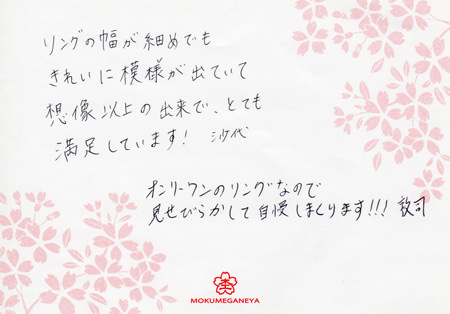 リングの幅が細めでも
きれいに模様が出ていて
想像以上の出来で、とても
満足しています! 沙代
オンリーワンのリングなので
見せびらかして自慢しまくります!!! 敦司
MOKUMEGANEYA